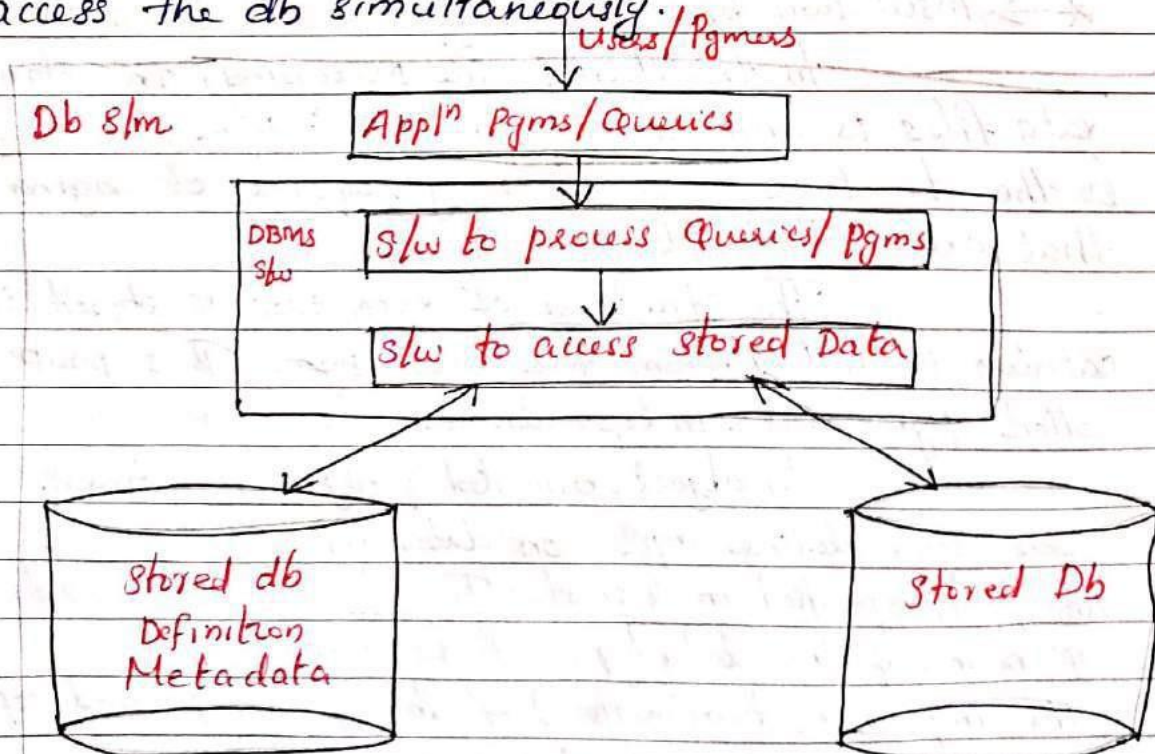 access the db simultaneously.
Users/Pgmers
Db s/m
Appl^n Pgms/Queries
DBMS
s/w
S/w to process Queries/Pgms
S/w to access stored Data
Stored db
Definition
Metadata
Stored Db